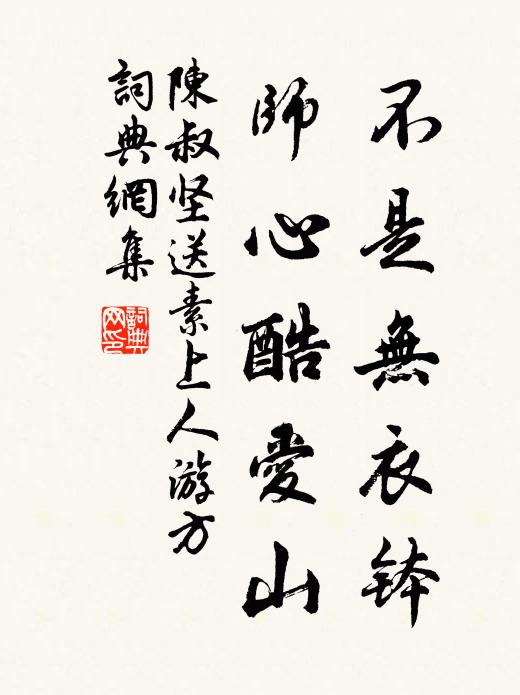 不是無衣鉢
師心酷愛山
陳叔坚送素上人游方
詞典網集
詞典网印